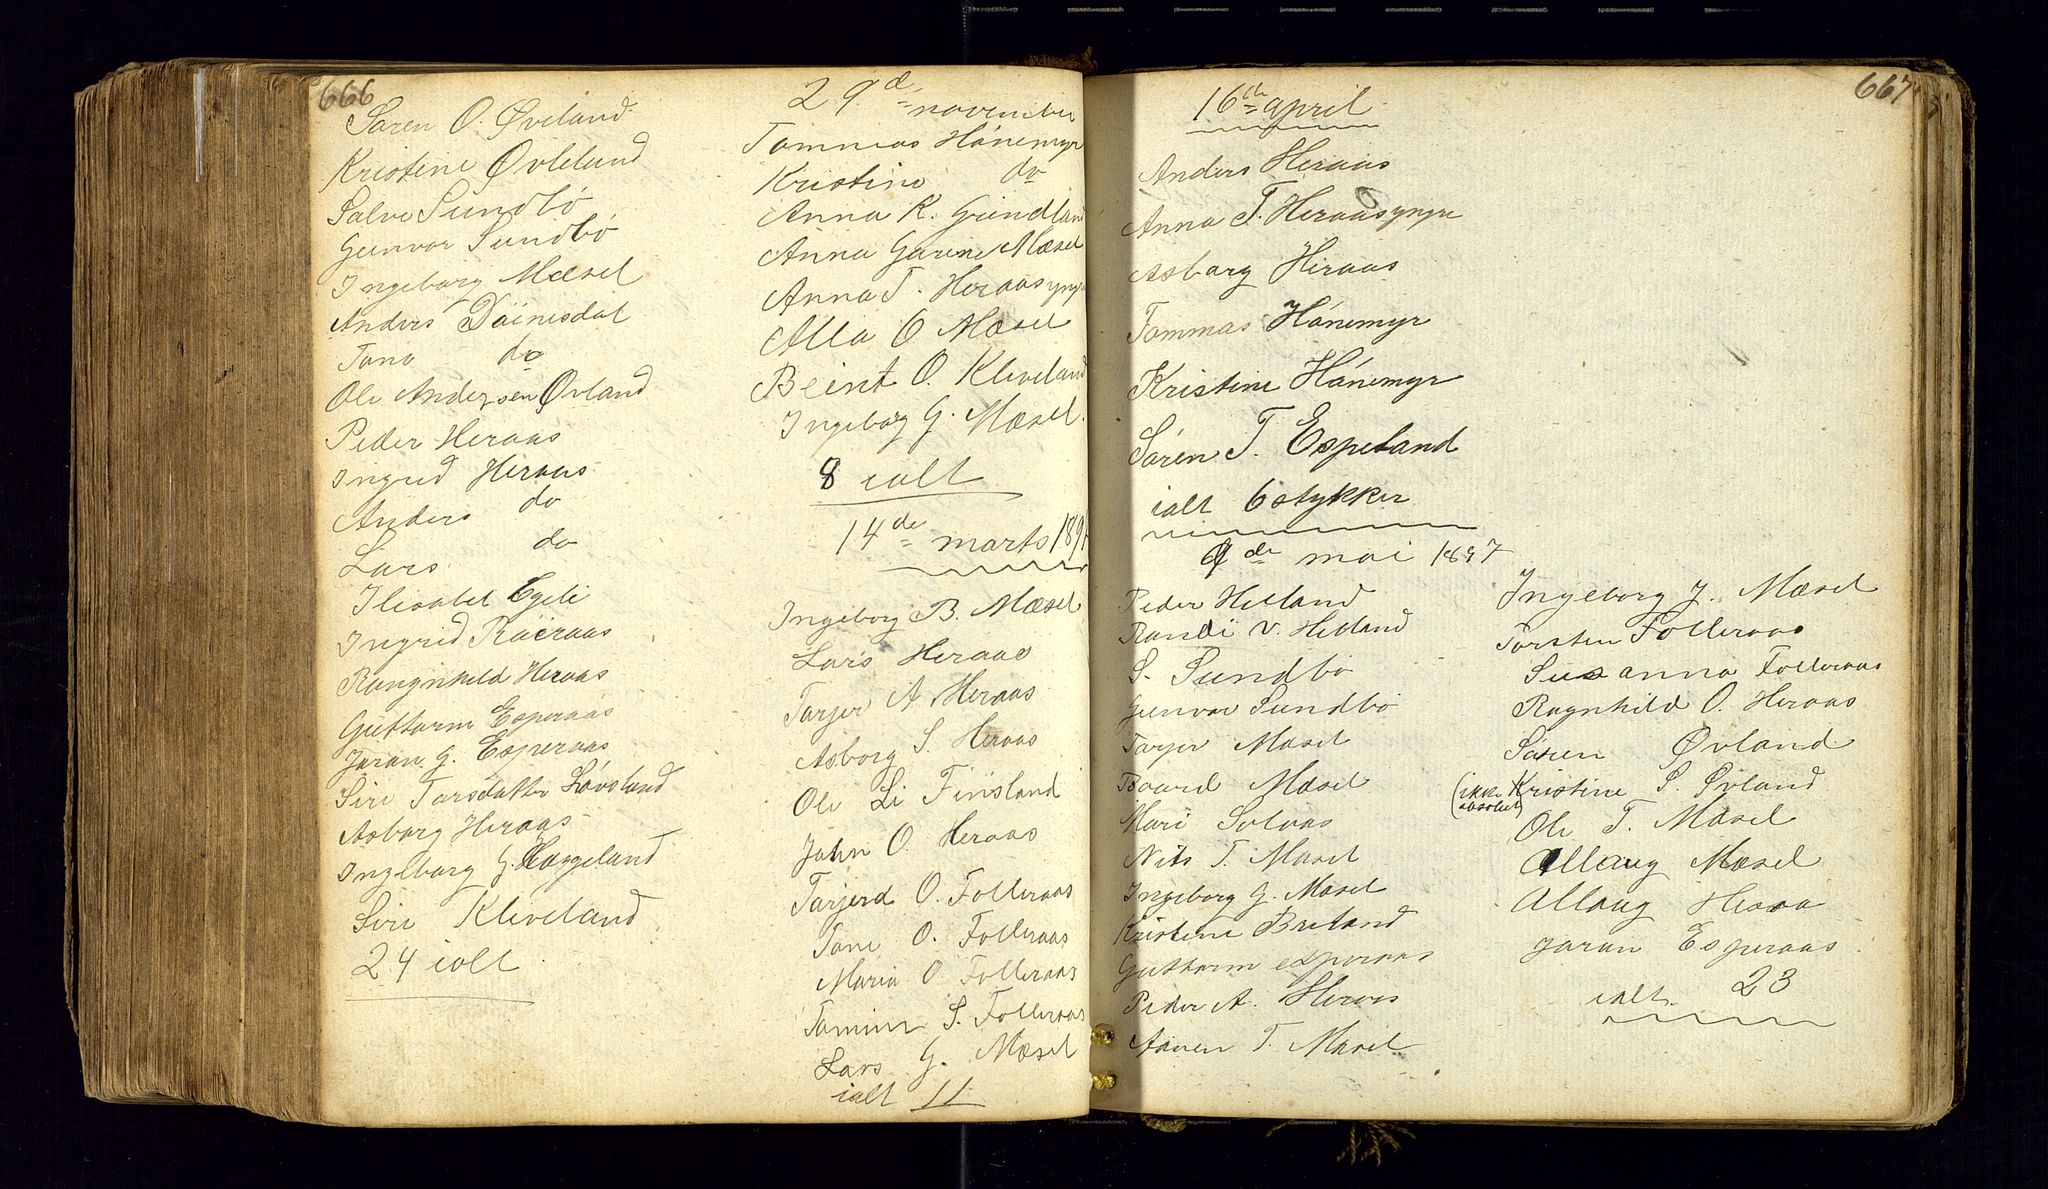 666
Søren O. Øveland
Kristine Øvleland
Salve Sundbö
Gunvor Sundbö
Ingeborg Mæsel
Anders Döinesdal
Tone do
Ole Andersen Øvland
Peder Heraas
Ingrid Heraas
Anders do
Lars do
Ilisabet Egeli
Ingrid Röiraas
Rangnhild Heraas
Guttorm Esperaas
Jøran G. Esperaas
Siri Tarsdatter Lövsland
Asborg Heraas
Ingeborg G. Haegeland
Siri Kleveland
24 ialt
29de november
Tommas Hånemyr
Kristine do
Anna K. Grindland
Anna Gurine Mæsel
Anna T. Heraas yngre
Alla O Mæsel
Beint O. Kleveland
Ingeborg G. Mæsel.
8 ialt
14de marts 189
Ingeborg B. Mæsel
Lars Heraas
Tarjer A. Heraas
Asborg S. Heraas
Ole Li Finsland
John O. Heraas
Tarjerd O. Folleraas
Tone O. Folleraas
Maria O. Folleraas
S. Folleraas
Lars G. Mæsel
ialt 11
667
16de april
Anders Heraas
Anna T. Heraas yngre
Asborg Heraas
Tommas Hånemyr
Kristine Hånemyr
Søren T. Espeland
ialt 6 stykker
9de mai 1897
Peder Helland
Randi V. Helland
S. Sundbö
Gunvor Sundbö
Tarjer Mæsel
Baard Mæsel
Mari Solaas
Nils T. Mæsel
Ingeborg G. Mæsel
Kristine Breland
Guttorm Esperaas
Peder A. Heraas
Aanen T. Mæsel
Ingeborg J. Mæsel
Torsten Folleraas
Susanna Folleraas
Ragnhild O. Heraas
Søren Øvland
(ikke absolvert) Kristine S. Øvland
Ole T. Mæsel
Allaug Mæsel
Allaug Heraa
Jøran Esperaas
ialt. 23